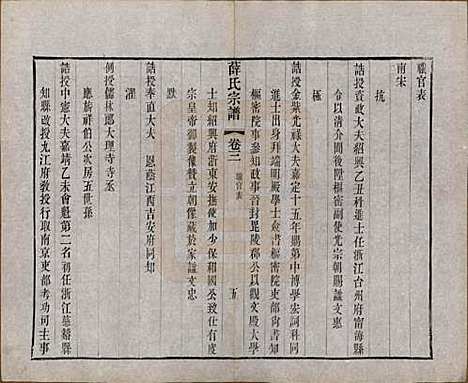 職官表
南宋
抗
誥授資政大夫紹興乙丑科進士任浙江台州府甯海縣
以清介聞後歷樞密副使光宗朝賜諡文惠
極
誥授金紫光祿大夫嘉定十五年賜第中博學宏詞科同
進士出身拜端明殿學士僉書樞密院吏部尚書兼
樞密院事參知政事晉封毘陵郡公以觀文殿大學
薛氏宗譜
卷三
職官表
五
士知紹興府浙東安撫使少保和國公致仕諡
宗皇帝御製像贊立朝像藏於家諡文忠
默
誥授奉直大夫 恩蔭江西吉安府同知
濯
例授儒林郎大理寺寺丞
應旂祥伯公次房五世孫
誥授中憲大夫嘉靖乙未會魁第二名初任浙江慈谿縣
知縣改授九江府教授行取南京吏部考功司主事